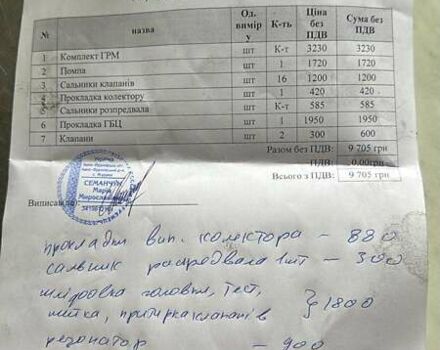 № назва Од. виміру К-ть Ціна без ПДВ Сума без ПДВ
1 Комплект ГРМ шт К-т 3230 3230
2 Помпа шт 1 1720 1720
3 Сальники клапанів шт 16 1200 1200
4 Прокладка колектору шт 1 420 420
5 Сальники розпредвала шт К-т 585 585
6 Прокладка ГБЦ шт 1 1950 1950
7 Клапани шт 2 300 600
Разом без ПДВ: 9 705 грн
ПДВ: 0,00грн
Всього з ПДВ: 9 705 грн
СЕМАНЧУК
Марія
Мирославівна
Виписав(ла):
прокладки вип. колектора - 880
сальник распредвала 1шт - 300
шліфовка головки, тест,
митка, притирка клапанів } 1800
резонатор - 900